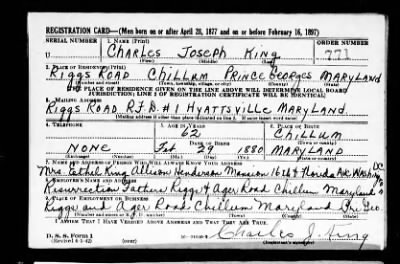 REGISTRATION CARD—(Men born on or after April 28, 1877 and on or before February 16, 1897)
SERIAL NUMBER 1. NAME (Print) ORDER NUMBER
CHARLES JOSEPH KING 771
(First) (Middle) (Last)
2. PLACE OF RESIDENCE (Print)
RIGGS ROAD CHILLUM PRINCE GEORGES MARYLAND
(Number and street) (Town, township, village, or city) (County) (State)
[THE PLACE OF RESIDENCE GIVEN ON THE LINE ABOVE WILL DETERMINE LOCAL BOARD
JURISDICTION; LINE 2 OF REGISTRATION CERTIFICATE WILL BE IDENTICAL]
3. MAILING ADDRESS
RIGGS ROAD R.F.D. #1 HYATTSVILLE MARYLAND.
(Mailing address if other than place indicated on line 2. If same insert word same)
4. TELEPHONE 5. AGE IN YEARS 6. PLACE OF BIRTH
62 CHILLUM
DATE OF BIRTH
NONE Feb 29 1880 MARYLAND
(Exchange) (Number) (Mo.) (Day) (Yr.) (State or country)
7. NAME AND ADDRESS OF PERSON WHO WILL ALWAYS KNOW YOUR ADDRESS
Mrs. Ethel King Allison Henderson Mansion Florida Ave. Wash. D.C.
8. EMPLOYER'S NAME AND ADDRESS
Resurrection Fathers Riggs & Ager Road Chillum Maryland
9. PLACE OF EMPLOYMENT OR BUSINESS
Riggs and Ager Road Chillum Maryland Pri. Geo.
(Number and street or R. F. D. number) (Town) (County) (State)
I AFFIRM THAT I HAVE VERIFIED ABOVE ANSWERS AND THAT THEY ARE TRUE.
D. S. S. Form 1
(Revised 4-1-42) (over)
Charles J. King
(Registrant's signature)